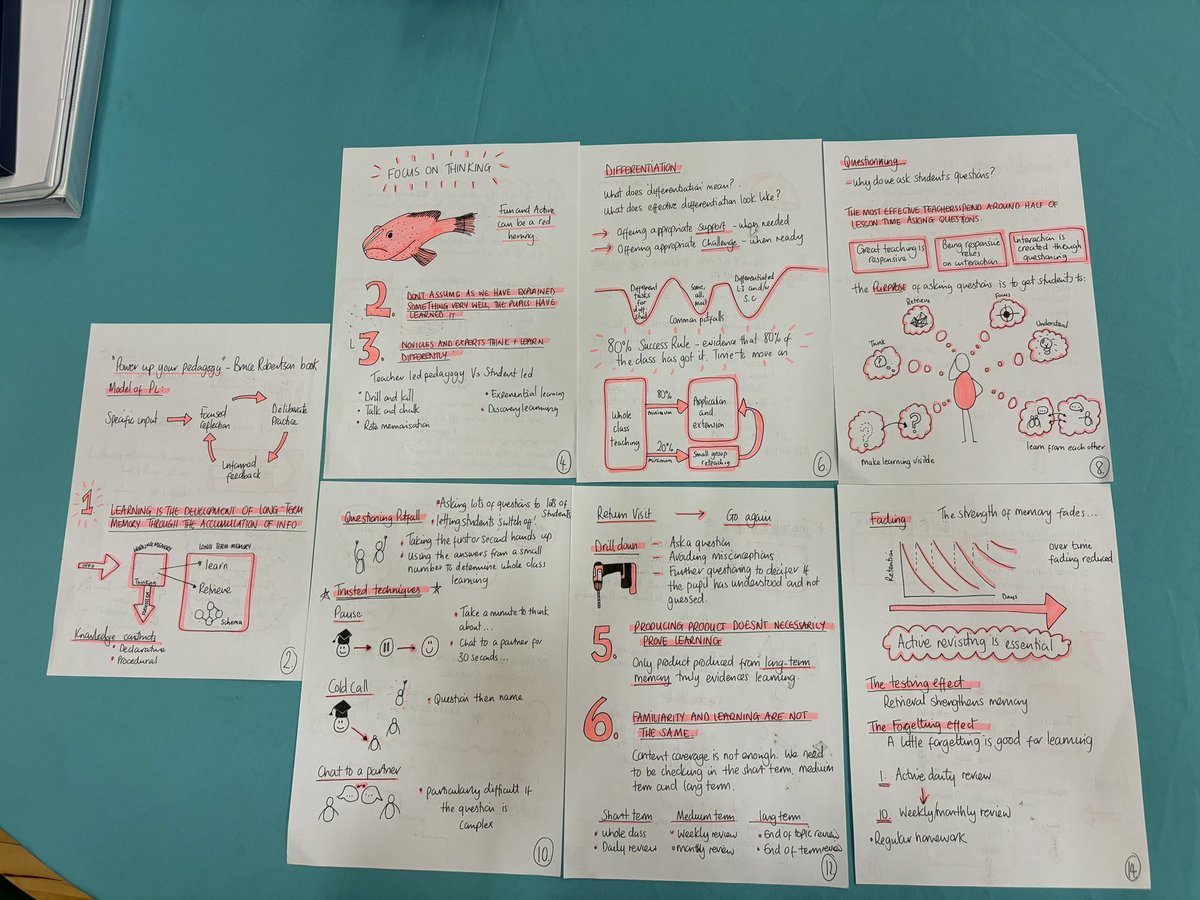 "Power up your pedagogy" - Bruce Robertson book
Model of PL:
Specific input
Focused
reflection
Deliberate
Practice
Informed
feedback
1
LEARNING IS THE DEVELOPMENT OF LONG-TERM
MEMORY THROUGH THE ACCUMULATION OF INFO
INFO
WORKING MEMORY
Thinking
FORGOTTEN
LONG TERM MEMORY
learn
Retrieve
Schema
Knowledge contents
• Declarative
• Procedural
2.
FOCUS ON THINKING
Fun and Active
can be a red
herring.
2.
DON'T ASSUME AS WE HAVE EXPLAINED
SOMETHING VERY WELL, THE PUPILS HAVE
LEARNED IT
3.
NOVICES AND EXPERTS THINK + LEARN
DIFFERENTLY
Teacher led pedagogy Vs Student led
• Drill and kill
• Talk and chalk
• Rote memorisation
• Exponential learning
• Discovery learning
4.
DIFFERENTIATION
What does 'differentiation' mean?
What does effective differentiation look like?
→ Offering appropriate Support - when needed
→ Offering appropriate Challenge - when ready
Different
tasks
for
Some,
all,
most
Differentiated
LI and/or
S.C
Common pitfalls
80% Success Rule - evidence that 80% of
the class has got it. Time to move on
Whole
class
teaching
80%
minimum
Application
and
extension
20%
minimum
Small group
reteaching
6.
Questioning
- Why do we ask students questions?
THE MOST EFFECTIVE TEACHERS SPEND AROUND HALF OF
LESSON TIME ASKING QUESTIONS.
Great teaching is
responsive
Being responsive
relies
on interaction
Interaction is
created through
questioning
the PURPOSE of asking questions is to get students to:
Retrieve
Focus
Think
Understand
make learning visible
learn from each other
8.
Questioning Pitfall
• Asking lots of questions to lots of
students
• letting students 'switch off'
• Taking the first or second hands up
• Using the answers from a small
number to determine whole class
learning
Trusted techniques
Pause
• Take a minute to think
about...
• Chat to a partner for
30 seconds...
Cold Call
• Question then name
Chat to a partner
• particularly difficult if
the question is
complex
10.
Return Visit → Go again
Drill down
- Ask a question
- Avoiding misconceptions
- Further questioning to decifer if
the pupil has understood and not
guessed.
5.
PRODUCING PRODUCT DOESN'T NECESSARILY
PROVE LEARNING
Only product produced from long-term
memory truly evidences learning.
6.
FAMILIARITY AND LEARNING ARE NOT
THE SAME.
Content coverage is not enough. We need
to be checking in the short term, medium
term and long term.
Short term
• whole class
• Daily review
Medium term
• Weekly review
• montly review
long term
• End of topic review
• End of term review
12.
Fading
The strength of memory fades...
Retention
Days
over time
fading reduced
Active revisiting is essential
The testing effect
Retrieval strengthens memory
The Forgetting effect
A little forgetting is good for learning
1. Active daily review
10. Weekly/monthly review
• Regular homework
14.